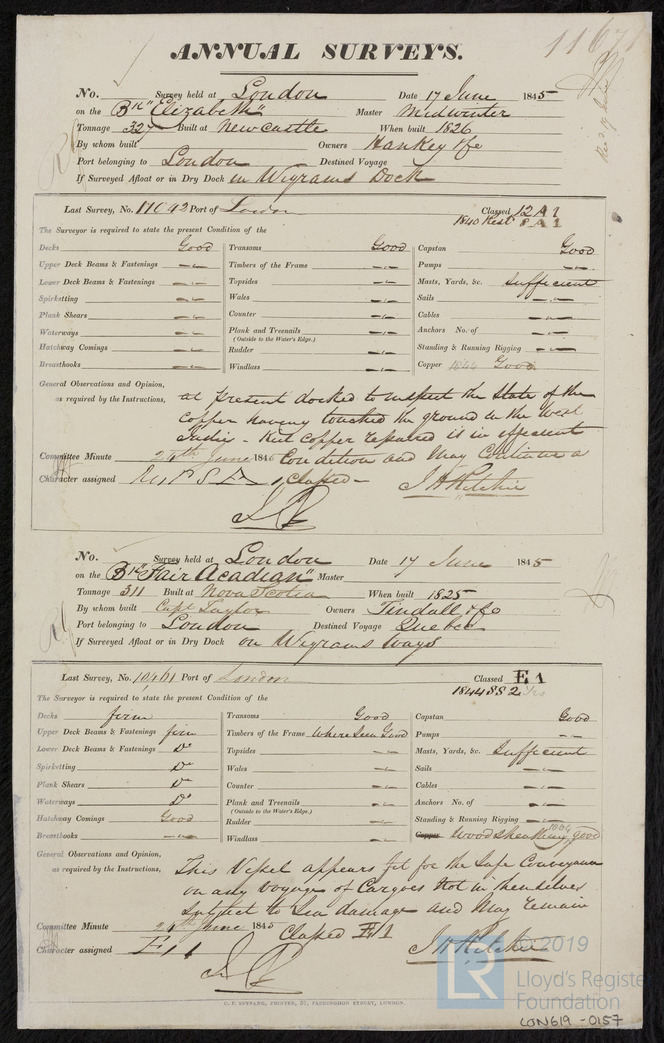 ANNUAL SURVEYS.
No. Survey held at London Date 17 June 1845
on the Bk "Elizabeth" Master Midwinter
Tonnage 327 Built at Newcastle When built 1826
By whom built Owners Hankey & Co
Port belonging to London Destined Voyage
If Surveyed Afloat or in Dry Dock in Wigrams Dock
Last Survey, No. 11042 Port of London Classed 12 A1
1840 Rest 8 A1
The Surveyor is required to state the present Condition of the
Decks Good Transoms Good Capstan Good
Upper Deck Beams & Fastenings Timbers of the Frame Pumps
Lower Deck Beams & Fastenings Topsides Masts, Yards, &c. Sufficient
Spirketting Wales Sails
Plank Shears Counter Cables
Waterways Plank and Treenails Anchors No. of
(Outside to the Water's Edge.)
Hatchway Comings Rudder Standing & Running Rigging
Breasthooks Windlass Copper Good
General Observations and Opinion,
as required by the Instructions,
at present docked to inspect the State of the
Copper having touched the ground in the West
Indies - Keel Copper repaired is in efficient
Committee Minute 24th June 1845 Condition and May Continue as
Character assigned Classed - J H Ritchie
No. Survey held at London Date 17 June 1845
on the Bk "Fair Acadian" Master
Tonnage 311 Built at Nova Scotia When built 1825
By whom built Capt Taylor Owners Tindall & Co
Port belonging to London Destined Voyage Quebec
If Surveyed Afloat or in Dry Dock on Wigrams Ways
Last Survey, No. 10461 Port of London Classed E 1
1844 882 Yrs
The Surveyor is required to state the present Condition of the
Decks firm Transoms Good Capstan Good
Upper Deck Beams & Fastenings firm Timbers of the Frame Where Seen Good Pumps
Lower Deck Beams & Fastenings Do Topsides Masts, Yards, &c. Sufficient
Spirketting Do Wales Sails
Plank Shears Do Counter Cables
Waterways Do Plank and Treenails Anchors No. of
(Outside to the Water's Edge.)
Hatchway Comings Good Rudder Standing & Running Rigging
Breasthooks Windlass Copper Wood Sheathing good
General Observations and Opinion,
as required by the Instructions,
This Vessel appears fit for the Safe Conveyance
on any Voyage of Cargoes Not in themselves
Subject to Sea damage and May remain
Committee Minute 24th June 1845 Classed E 1
Character assigned E 1 J H Ritchie
© 2019
Lloyd's Register
Foundation
C. F. SEYFANG, PRINTER, 57, FARRINGDON STREET, LONDON.
LON619-0157